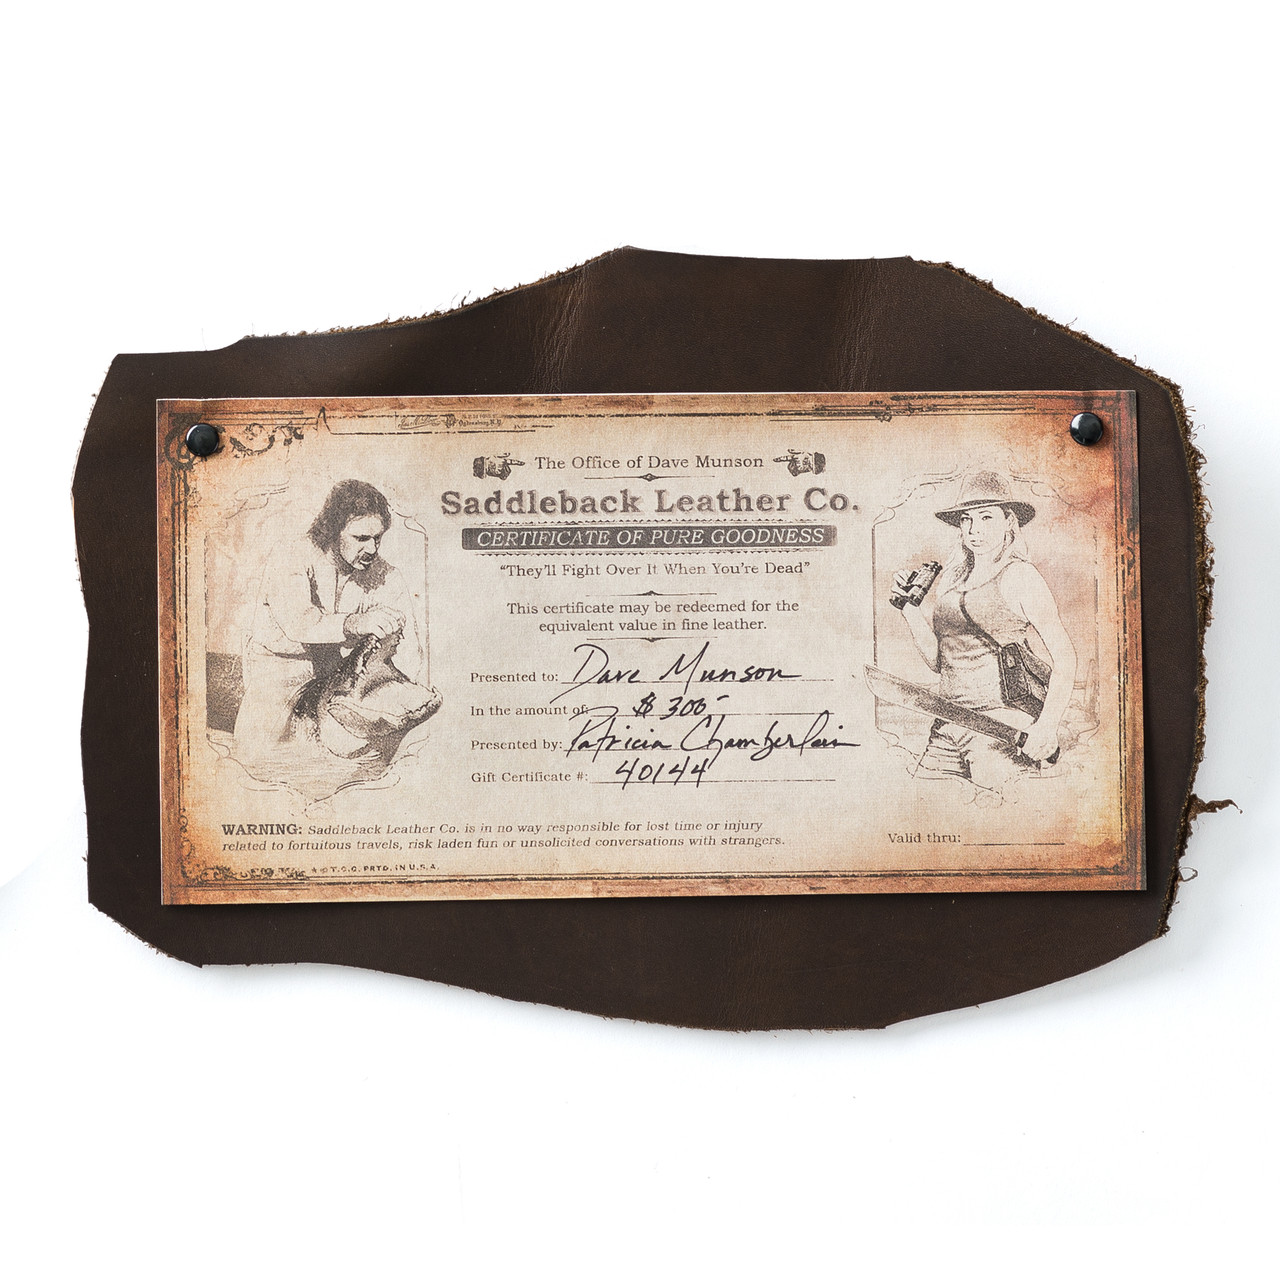 The Office of Dave Munson
Saddleback Leather Co.
CERTIFICATE OF PURE GOODNESS
“They’ll Fight Over It When You’re Dead”
This certificate may be redeemed for the
equivalent value in fine leather.
Presented to: Dave Munson
In the amount of: $ 300-
Presented by: Patricia Chamberlain
Gift Certificate #: 40144
WARNING: Saddleback Leather Co. is in no way responsible for lost time or injury
related to fortuitous travels, risk laden fun or unsolicited conversations with strangers.
Valid thru:
T.C.G. PRTD. IN U.S.A.